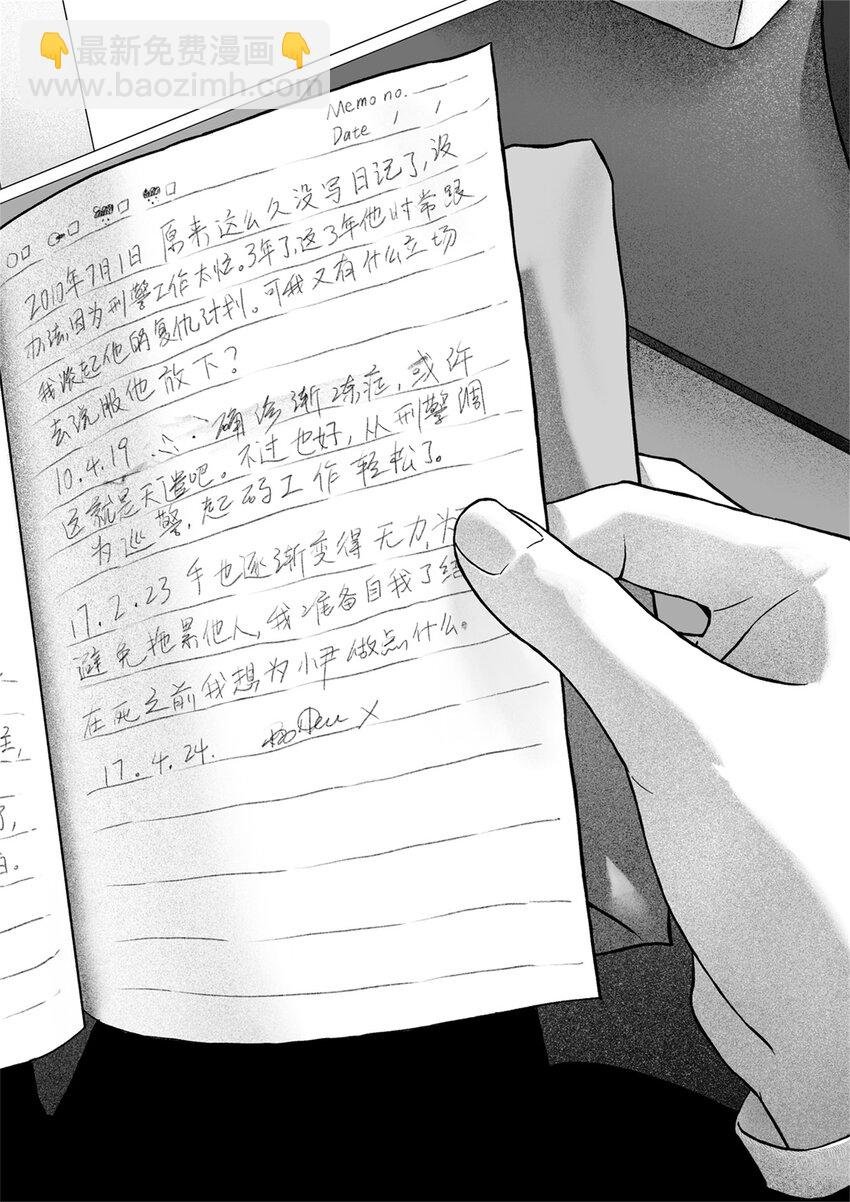 👇最新免费漫画👇
www.baozimh.com
Memo no.
Date
2010年7月1日 原来这么久没写日记了,没
办法,因为刑警工作太忙。3年了,这3年他时常跟
我谈起他的复仇计划。可我又有什么立场
去说服他放下?
10.4.19 确诊渐冻症,或许
这就是天谴吧。不过也好,从刑警调
为巡警,起码工作轻松了。
17.2.23 手也逐渐变得无力,为
避免拖累他人,我准备自我了结
在死之前我想为小尹做点什么。
17.4.24.
了,